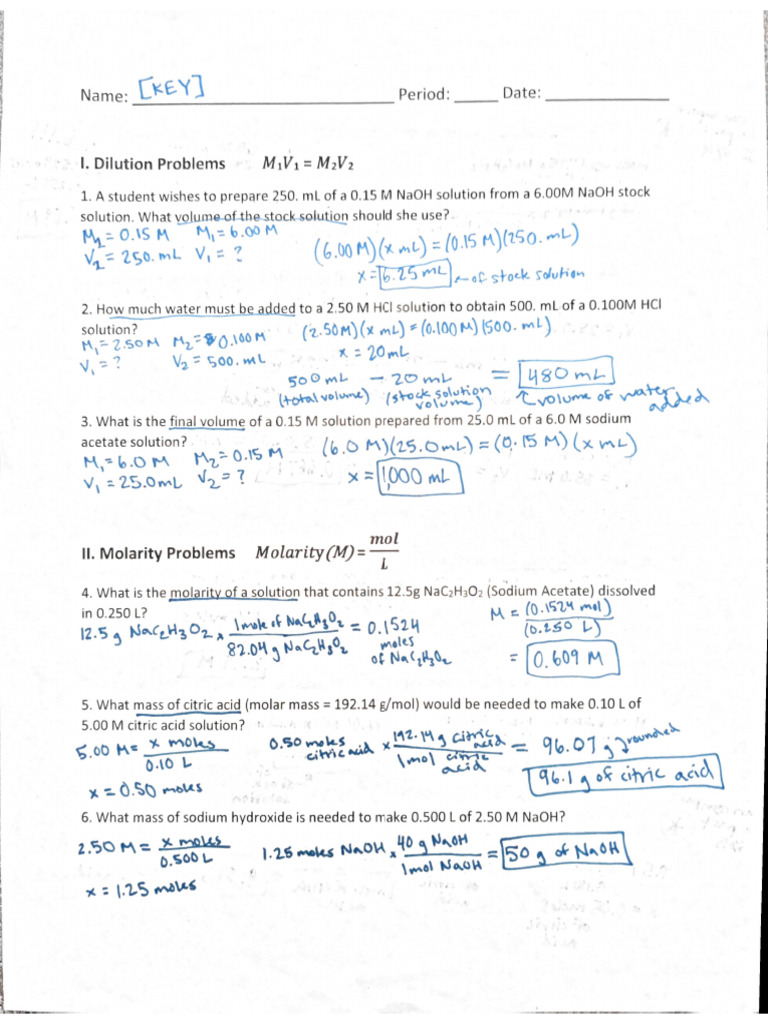 Name: [KEY] Period: Date:
I. Dilution Problems M₁V₁ = M₂V₂
1. A student wishes to prepare 250. mL of a 0.15 M NaOH solution from a 6.00M NaOH stock
solution. What volume of the stock solution should she use?
M₂ = 0.15 M M₁ = 6.00 M
V₂ = 250. mL V₁ = ?
(6.00 M)(x mL) = (0.15 M)(250. mL)
x = 6.25 mL ← of stock solution
2. How much water must be added to a 2.50 M HCl solution to obtain 500. mL of a 0.100M HCl
solution?
M₁ = 2.50 M M₂ = 0.100 M (2.50M)(x mL) = (0.100 M)(500. mL)
V₁ = ? V₂ = 500. mL x = 20 mL
500 mL − 20 mL = 480 mL
(total volume) (stock solution volume) volume of water added
3. What is the final volume of a 0.15 M solution prepared from 25.0 mL of a 6.0 M sodium
acetate solution?
(6.0 M)(25.0 mL) = (0.15 M)(x mL)
M₁ = 6.0 M M₂ = 0.15 M
V₁ = 25.0 mL V₂ = ? x = 1,000 mL
II. Molarity Problems Molarity(M) = mol/L
4. What is the molarity of a solution that contains 12.5g NaC₂H₃O₂ (Sodium Acetate) dissolved
in 0.250 L?
12.5 g NaC₂H₃O₂ × 1 mole of NaC₂H₃O₂ / 82.04 g NaC₂H₃O₂ = 0.1524 moles of NaC₂H₃O₂
M = (0.1524 mol) / (0.250 L)
= 0.609 M
5. What mass of citric acid (molar mass = 192.14 g/mol) would be needed to make 0.10 L of
5.00 M citric acid solution?
5.00 M = x moles / 0.10 L
x = 0.50 moles
0.50 moles citric acid × 192.14 g citric acid / 1 mol citric acid = 96.07 g rounded
96.1 g of citric acid
6. What mass of sodium hydroxide is needed to make 0.500 L of 2.50 M NaOH?
2.50 M = x moles / 0.500 L
x = 1.25 moles
1.25 moles NaOH × 40 g NaOH / 1 mol NaOH = 50 g of NaOH